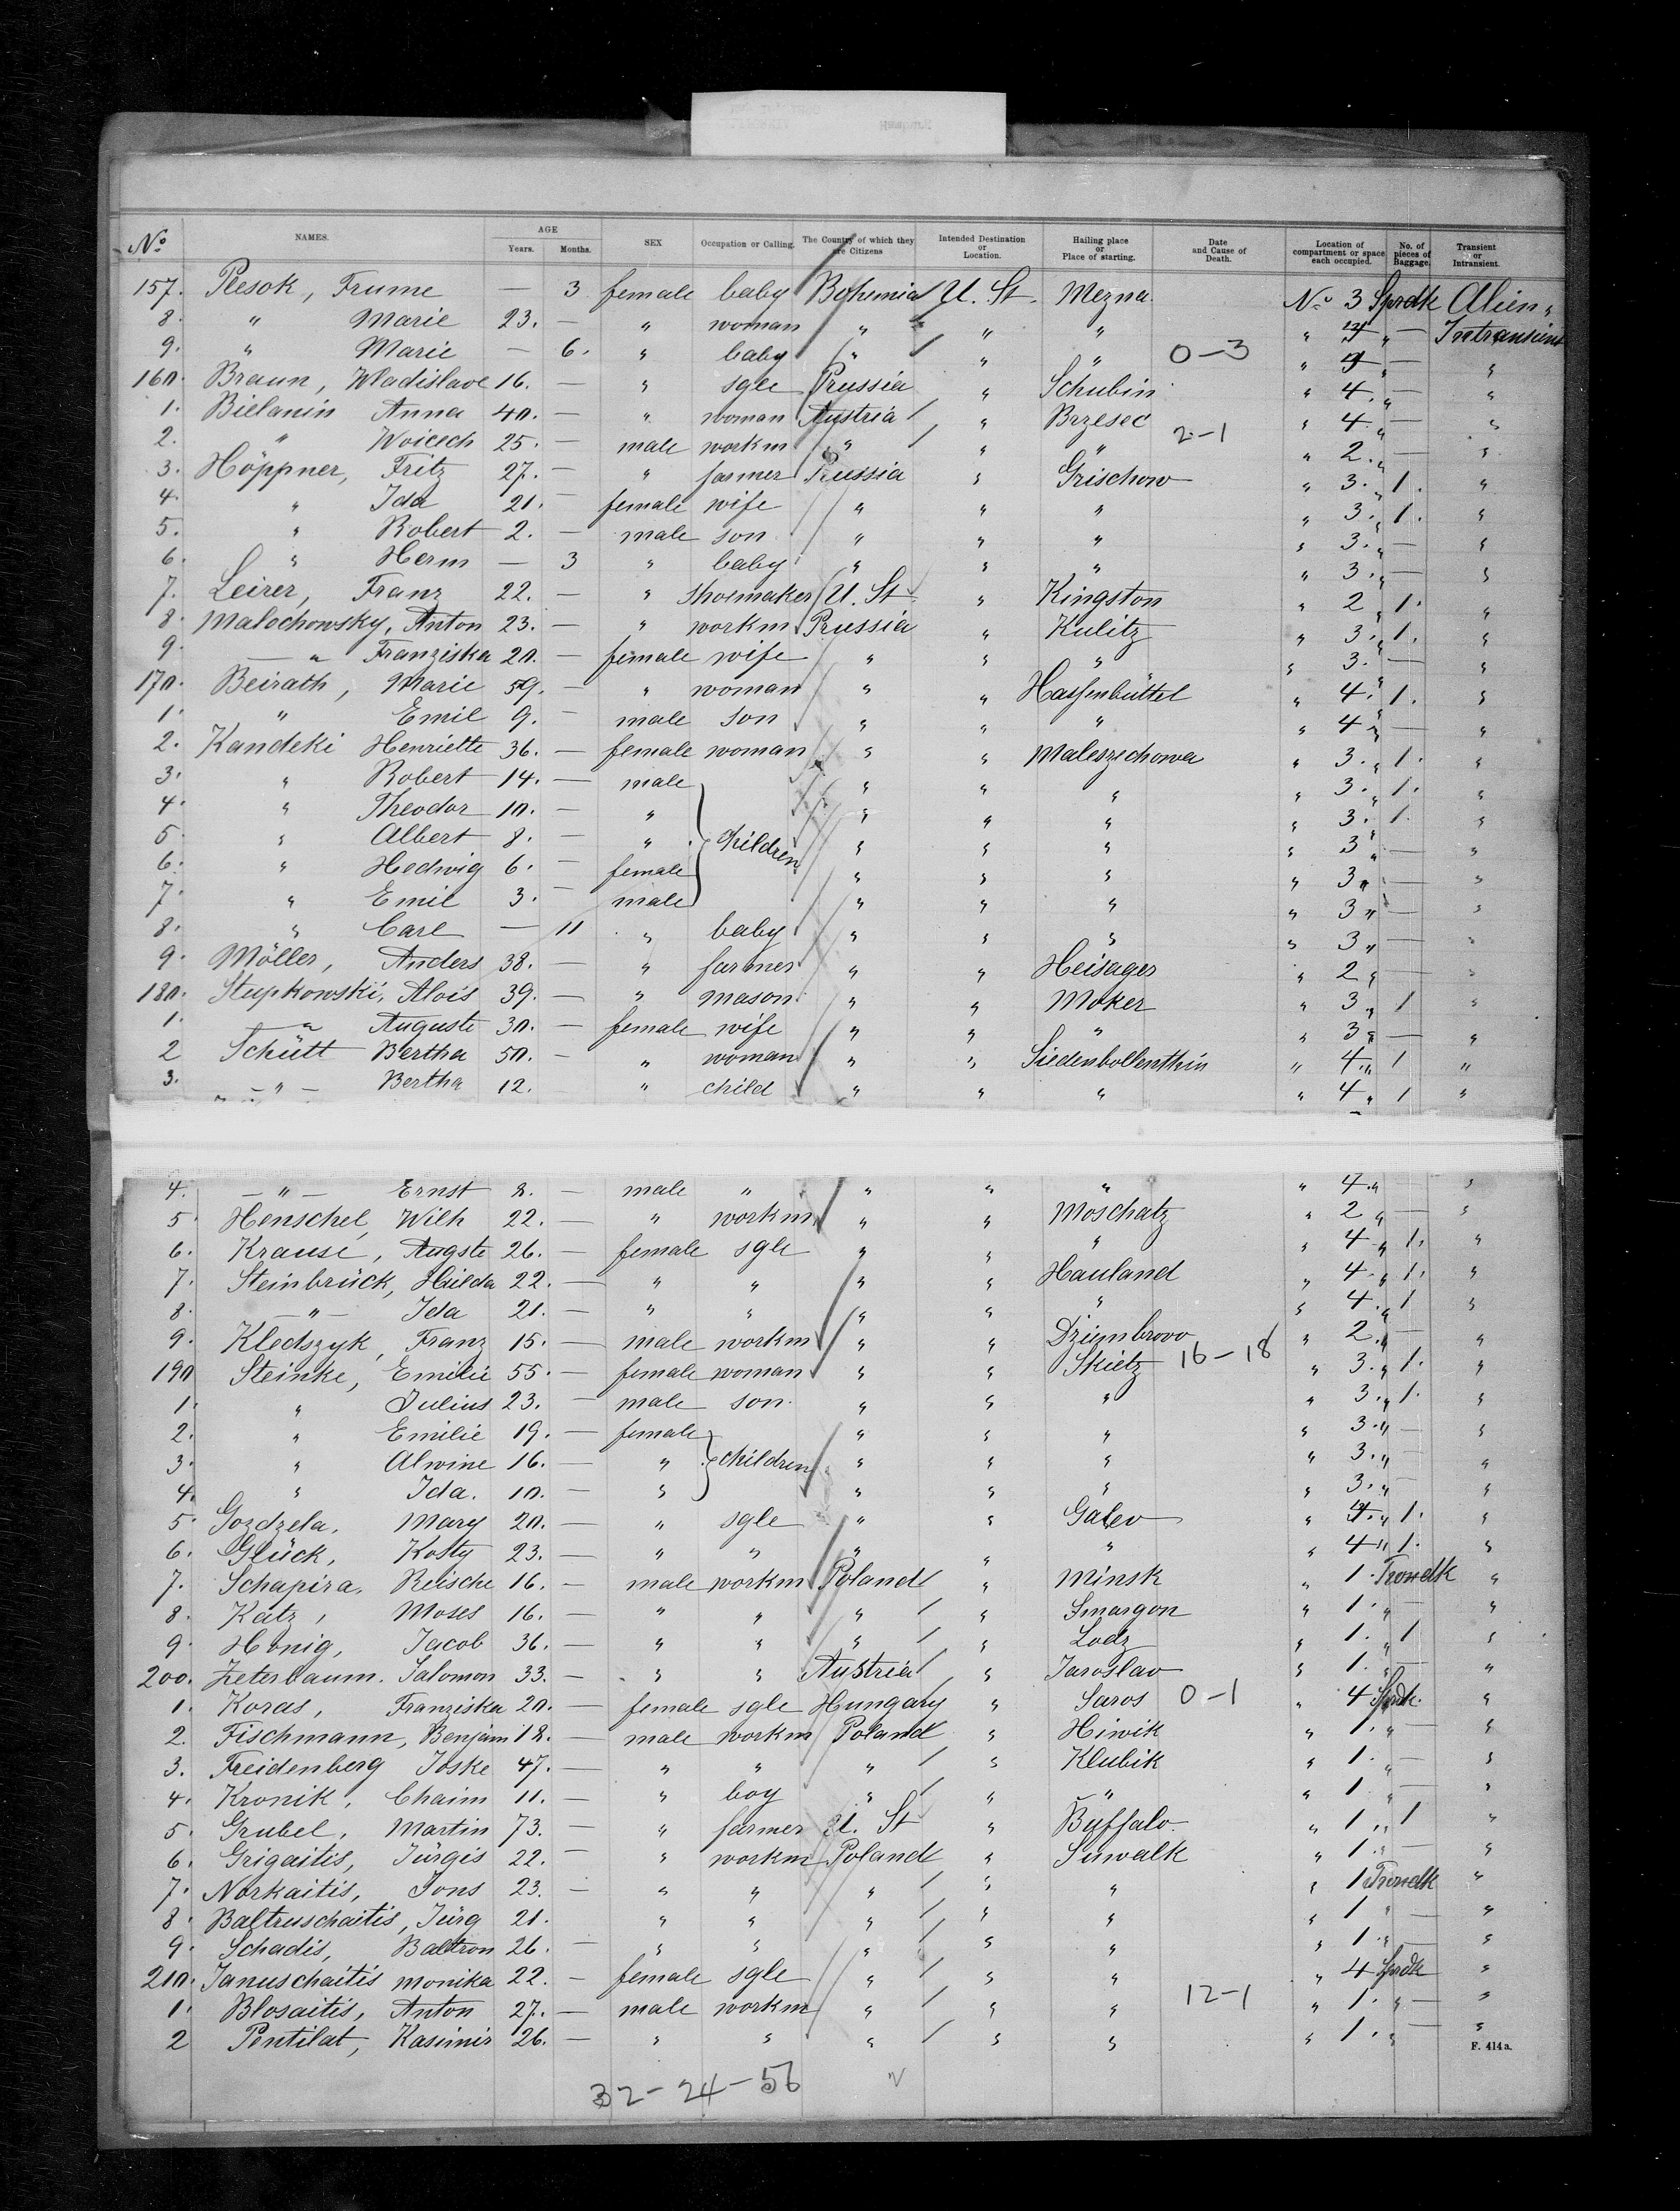 No. NAMES. AGE Years. Months. SEX Occupation or Calling. The Country of which they are Citizens Intended Destination or Location. Hailing place or Place of starting. Date and Cause of Death. Location of compartment or space each occupied. No. of pieces of Baggage. Transient or Intransient.
157. Plesok, Frume — 3 female baby Bohemia U. St. Mezna No 3 Sprdk Alien "
8. " Marie 23. — " woman " " " " 3 " — Intransient
9. " Marie — 6. " baby " " " 0-3 " 3 " — "
160. Braun, Wladislave 16. — " sgle Prussia " Schubin " 4. " — "
1. Bielanin Anna 40. — " woman Austria " Brzesec " 4. " — "
2. " Woicech 25. — male workm " " " 2-1 " 2. " — "
3. Höppner, Fritz 27. — " farmer Prussia " Grischow " 3. " 1. "
4. " Ida 21. — female wife " " " " 3. " 1. "
5. " Robert 2. — male son " " " " 3. " — "
6. " Herm — 3 " baby " " " " 3. " — "
7. Leirer, Franz 22. — " shoemaker U. St. " Kingston " 2 " 1. "
8. Malochowsky, Anton 23. — " workm. Prussia " Kulitz " 3. " 1. "
9. — " Franziska 20. — female wife " " " " 3. — "
170. Beirath, Marie 59. — " woman " " Hassenbüttel " 4. " 1. "
1. " Emil 9. — male son " " " " 4 " — "
2. Kandeki Henriette 36. — female woman " " Maleszechowa " 3. " 1. "
3. " Robert 14. — male " " " " 3. " 1. "
4. " Theodor 10. — " " " " " 3. 1. "
5. " Albert 8. — " children " " " " 3 " — "
6. " Hedwig 6. — female " " " " 3 " — "
7. " Emil 3. — male " " " " 3 " — "
8. " Carl — 11 " baby " " " " 3 " — "
9. Möller, Anders 38. — " farmer " " Heisager " 2 " — "
180. Stupkowski, Alois 39. — " mason " " Moker " 3 " 1 "
1. — " Auguste 30. — female wife " " " " 3 " — "
2 Schütt Bertha 50. — " woman " " Siedenbollenthin " 4. " 1 "
3. — " — Bertha 12. " child " " " " 4 " 1 "
4. — " — Ernst 8. — male " " " " " 4. " — "
5. Henschel, Wilh 22. — " workm. " " Möschatz " 2 " — "
6. Krause, Augste 26. — female sgle " " " " 4 " 1. "
7. Steinbrück, Hulda 22. — " " " " Hauland " 4. " 1. "
8. — " — Ida 21. — " " " " " " 4. " 1 "
9. Kledszyk, Franz 15. — male workm " " Dziembrovo " 2. " — "
190 Steinke, Emilie 55. — female woman " " Skietz 16-18 " 3. " 1. "
1. " Julius 23. — male son " " " " 3. " 1. "
2. " Emilie 19. — female " " " " 3. " — "
3. " Alwine 16. — " children " " " " 3. " — "
4. " Ida. 10. — " " " " " 3. " — "
5. Gozdzela, Mary 20. — " sgle " " Galev " 4. " 1. "
6. Glück, Kosty 23. — " " " " " " 4 " 1. "
7. Schapira, Reische 16. — male workm Poland " Minsk " 1. "
8. Katz, Moses 16. — " " " " Smargon " 1. " — "
9. Honig, Jacob 36. — " " " " Lodz " 1. " 1 "
200. Zeterbaum. Salomon 33. — " " Austria " Jaroslav " 1. — "
1. Koras, Franziska 20. — female sgle Hungary " Saros 0-1 " 4 Sprdk. "
2. Fischmann, Benjam 18. — male workm Poland " Hiwik " 1. " — "
3. Freidenberg Joske 47. — " " " " Klubik " 1. " — "
4. Kronik, Chaim 11. — " boy " " — " — " 1 " — "
5. Grubel, Martin 73. — " farmer U. St " Buffalo " 1 " 1 "
6. Grigaitis, Jürgis 22. — " workm Poland " Suwalk " 1. " — "
7. Norkaitis, Jons 23. — " " " " " " 1 "
8. Baltruschaitis, Jürg 21. — " " " " " " 1 " — "
9. Schadis, Baltron 26. — " " " " " " 1. " — "
210. Januschaitis Monika 22. — female sgle " " " " 4 Sprdk "
1. Blosaitis, Anton 27. — male workm " " " 12-1 " 1. " — "
2 Pentilat, Kasimir 26. — " " " " " " 1. " — "
F. 414 a.
32-24-56